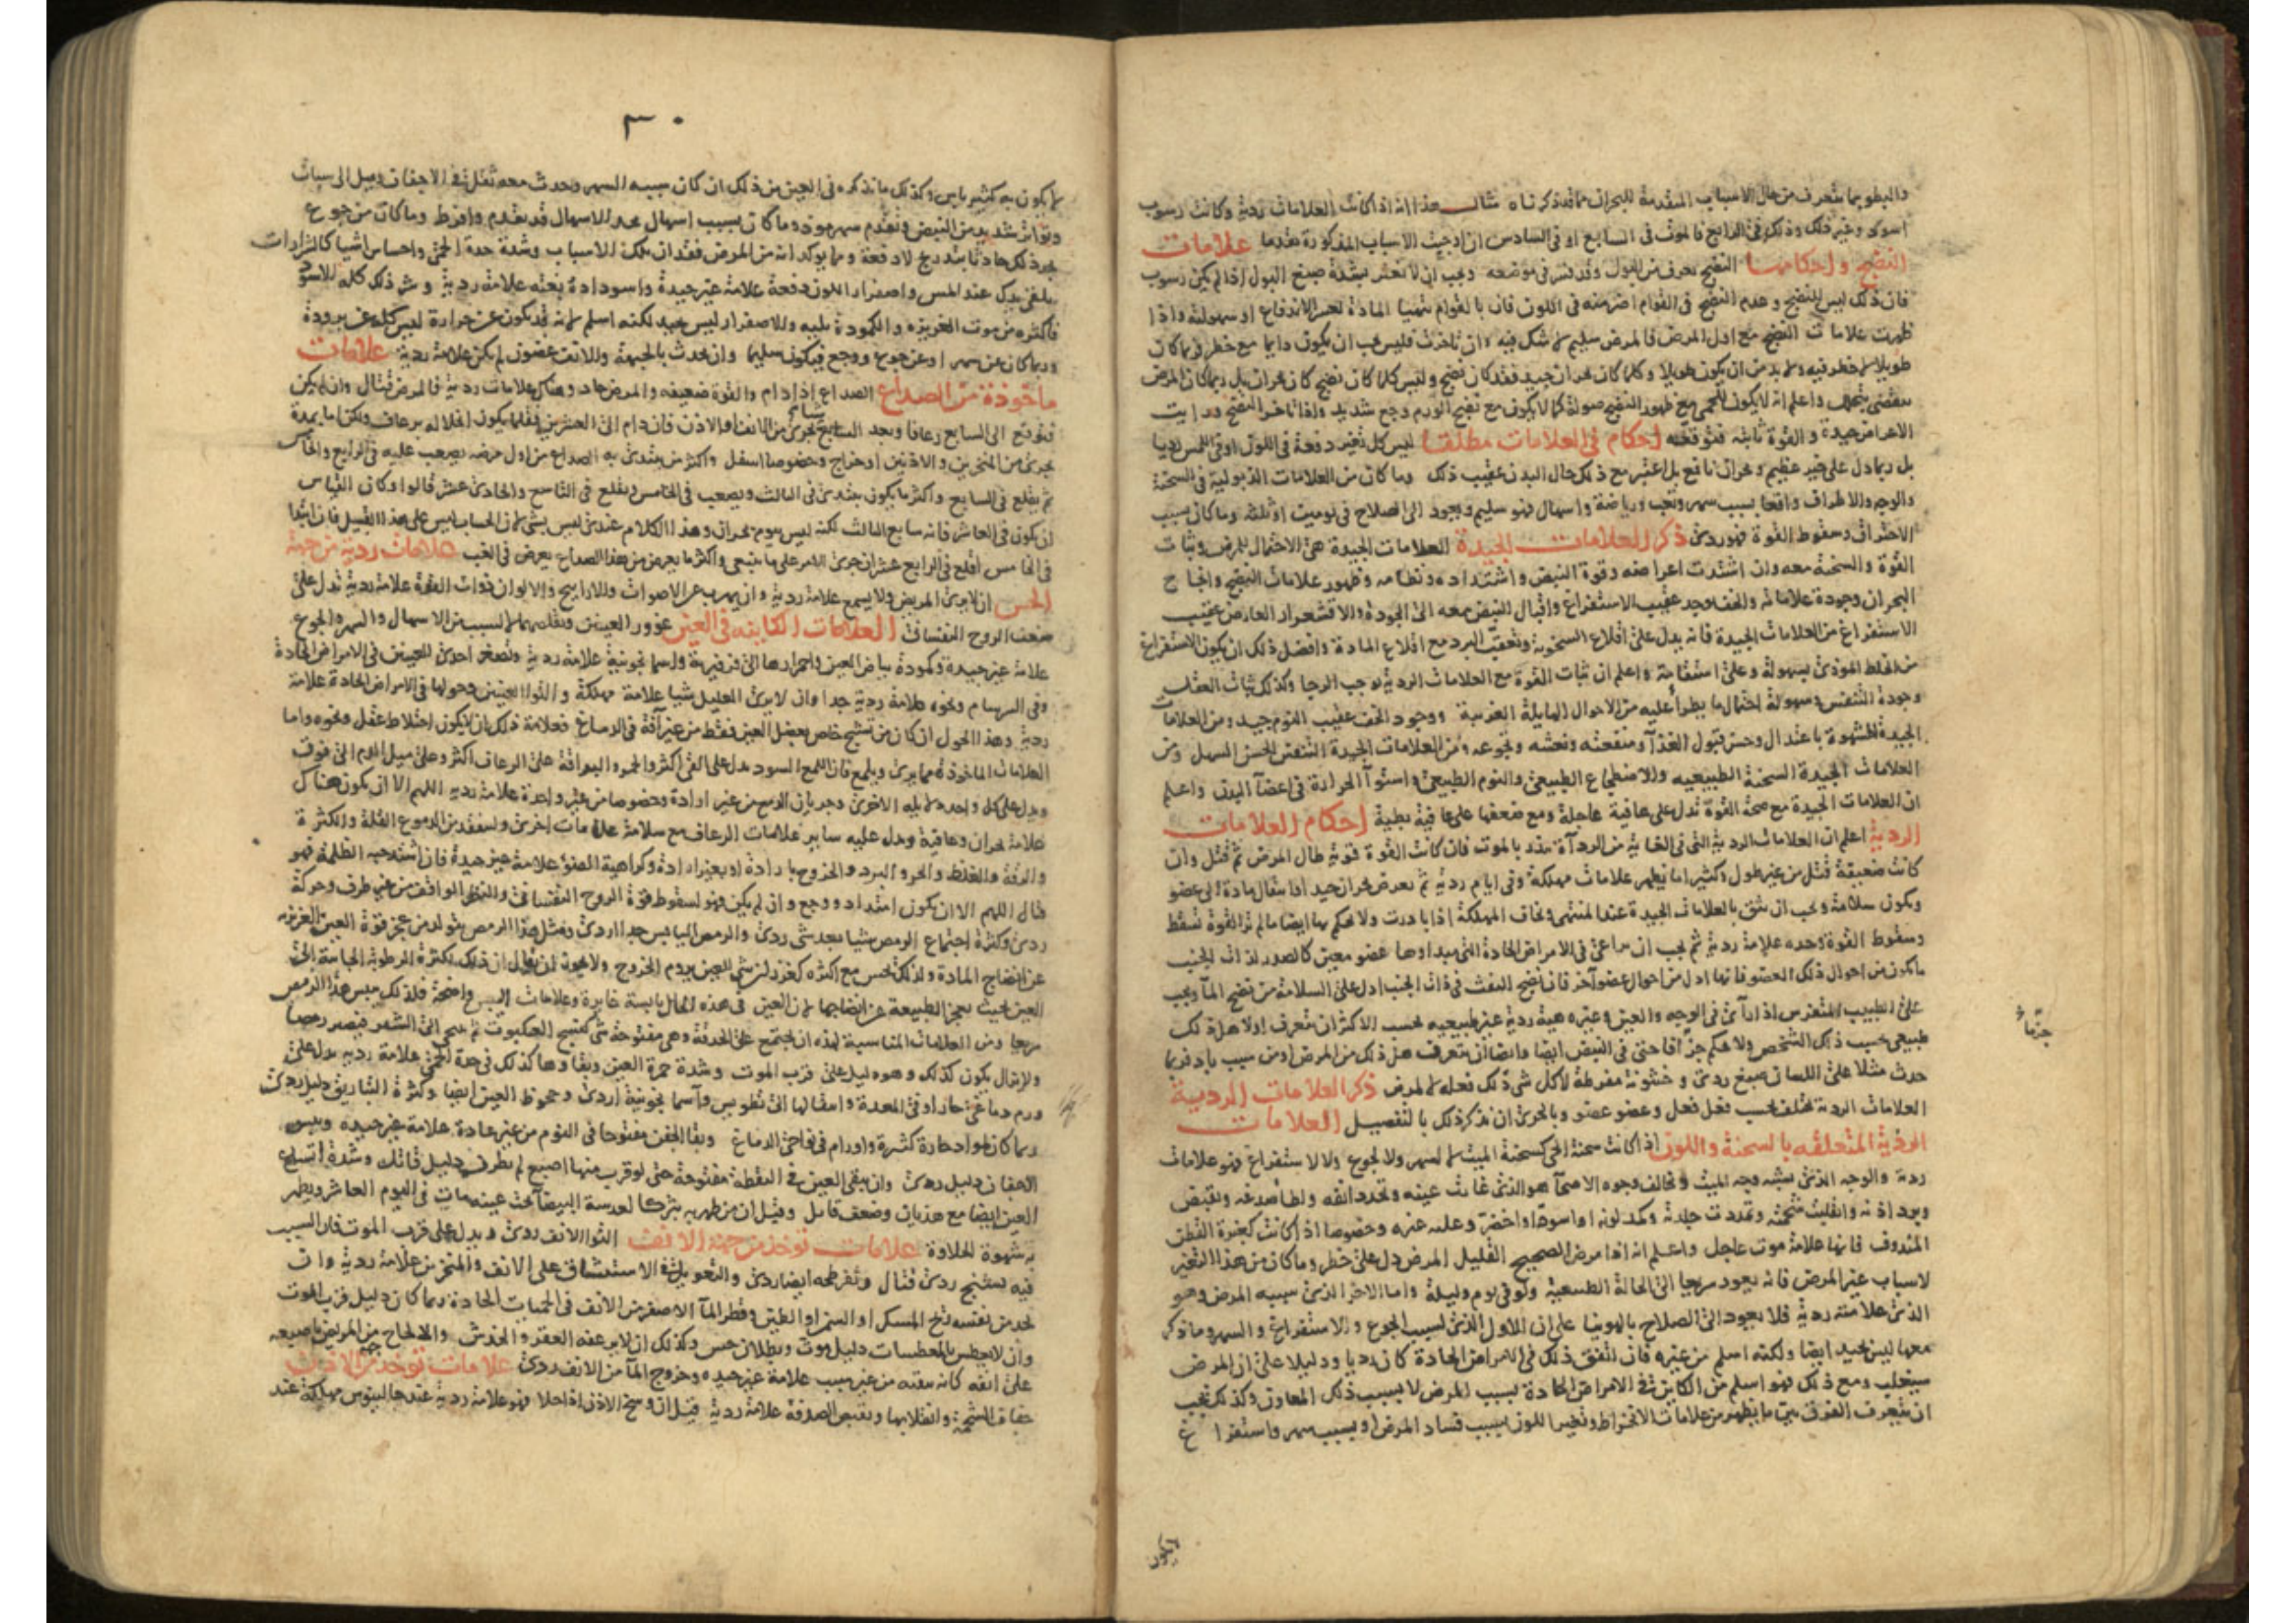 والبطو بما يتعرف من حال الاسباب المتقدمة للبحران مما قد ذكرناه مثال هذا انه اذا كانت العلامات ردية وكانت رسوب
اسود وغير ذلك وذلك في الرابع فالموت في السابع او في السادس ان اوجبت الاسباب المذكورة تقدما علامات
النضج واحكامها النضج يعرف من البول وقد فسر في موضعه ويجب ان لا تغتر بشدة صبغ البول اذا لم يكن رسوب
فان ذلك ليس للنضج وعدم النضج في القوام اضر منه في اللون فان بالقوام تتهيا المادة لعسر الاندفاع او سهولته واذا
ظهرت علامات النضج مع اول المرض فالمرض سليم لا شك فيه وان تاخرت فليس يجب ان يكون دايما مع خطر فربما كان
طويلا لا خطر فيه ولا بد من ان يكون طويلا وكلما كان بحران جيد فقد كان نضج وليس كلما كان نضج كان بحران بل ربما كان المرض
ينقضي بتحلل واعلم انه لا يكون للحمى مع ظهور النضج صولة كما لا يكون مع نضج الورم وجع شديد واذا تاخر النضج ورايت
الاعراض جيدة والقوة ثابتة فتوقعه احكام في العلامات مطلقا ليس كل تغير دفعة في اللون او في اللمس رديا
بل ربما دل على خير عظيم وبحران نافع بل اعتبر مع ذلك حال البدن عقيب ذلك وما كان من العلامات الذبولية في السحنة
والوجه والاطراف واقعا بسبب سهر وتعب ورياضة واسهال فهو سليم ويعود الى الصلاح في يومين او ثلثة وما كان بسبب
الاحتراق وسقوط القوة فهو ردي ذكر العلامات الجيدة العلامات الجيدة هي الاحتمال للمرض وثبات
القوة والسحنة معه وان اشتدت اعراضه وقوة النبض واشتداده ونظامه وظهور علامات النضج وانجاح
البحران وجودة علاماته والخف يوجد عقيب الاستفراغ واقبال النبض معه الى الجودة والاقشعرار العارض عقيب
الاستفراغ من العلامات الجيدة فانه يدل على اقلاع السخونة وتعقب البرد مع اقلاع المادة وافضل ذلك ان يكون الاستفراغ
من الخلط الموذي بسهولة وعلى استقامة واعلم ان ثبات القوة مع العلامات الردية يوجب الرجا وكذلك ثبات العقل
وجودة التنفس وسهولة احتمال ما يطرا عليه من الاحوال الهايلة الغريبة ووجود الخف عقيب النوم جيد ومن العلامات
الجيدة الشهوة باعتدال وحسن قبول الغذاء ومنفعته ونعشه ونجوعه ومن العلامات الجيدة التنفس الحسن السهل ومن
العلامات الجيدة السحنة الطبيعيه والاضطجاع الطبيعي والنوم الطبيعي واستواء الحرارة في اعضاء البدن واعلم
ان العلامات الجيدة مع صحة القوة تدل على عافية عاجلة ومع ضعفها على عافية بطية احكام العلامات
الردية اعلم ان العلامات الردية التي في الغاية من الرداءة تنذر بالموت فان كانت القوة قوية طال المرض ثم قتل وان
كانت ضعيفة قتل من غير طول وكثيرا ما تظهر علامات مهلكة وفي ايام ردية ثم يعرض بحران جيد او انتقال مادة الى عضو
ويكون سلامة ويجب ان يثق بالعلامات الجيدة عند المنتهى وتخاف المهلكة اذا بادرت ولا تحكم بها ايضا ما لم تر القوة تسقط
وسقوط القوة وحده علامة ردية ثم يجب ان يراعى في الامراض الحادة التي مبداوها عضو معين كالصدر لذات الجنب
ما يكون من احوال ذلك العضو فانها ادل من احوال عضو اخر فان نضج النفث في ذات الجنب ادل على السلامة من نضج الماء ويجب
على الطبيب المتفرس اذا رأى في الوجه والعين وغيره هيئة ردية غير طبيعيه بحسب الاكثر ان يتعرف اولا هل ذلك
طبيعي بحسب ذلك الشخص ولا يحكم جزافا حتى في النبض ايضا وايضا ان يتعرف هل ذلك من المرض او من سبب باد فربما
حدث مثلا على اللسان صبغ ردي وخشونة مفرطة لاكل شي ذلك فعله لا لمرض ذكر العلامات الردية
العلامات الردية تختلف بحسب فعل فعل وعضو عضو وبالحري ان نذكر ذلك بالتفصيل العلامات
الردية المتعلقه بالسحنة واللون اذا كانت سحنة الحي كسحنة الميت لا لسهر ولا لجوع ولا لاستفراغ فهو علامات
ردية والوجه الذي يشبه وجه الميت ويخالف وجوه الاصحاء هو الذي غارت عينه وتحدد انفه ولطا صدغه وتقبض
وبرد اذنه وانقلبت شحمته وتمددت جلدته وكمد لونه او اسود او اخضر وعليه غبره وخصوصا اذا كانت كغبرة القطن
المندوف فانها علامة موت عاجل واعلم انه اذا مرض الصحيح القليل المرض دل على خطر وما كان من هذا التغير
لاسباب غير المرض فانه يعود سريعا الى الحالة الطبيعية ولو في يوم وليلة واما الاخر الذي سببه المرض وهو
الذي علامته ردية فلا يعود الى الصلاح بالهوينا على ان الاول الذي لسبب الجوع والاستفراغ والسهر وما ذكر
معها ليس بجيد ايضا ولكنه اسلم من غيره فان اتفق ذلك في الامراض الحادة كان رديا ودليلا على ان المرض
سيغلب ومع ذلك فهو اسلم من الكاين في الامراض الحادة بسبب المرض لا بسبب ذلك المعاون وكذلك يجب
ان يتعرف الفرق بين ما يظهر من علامات الانخراط وتغير اللون بسبب فساد المرض او بسبب سهر واستفراغ
٣٠
لا يكون به كثير باس وكذلك ما نذكره في العين من ذلك ان كان سببه السهر وحدث معه ثقل في الاجفان وميل الى سبات
وتواتر شديد من النبض وتقدم سهر موذ وما كان بسبب اسهال تجد الاسهال قد تقدم وافرط وما كان من جوع
تجد ذلك حادثا بتدريج لا دفعة ومما يوكد انه من المرض فقدان تلك الاسباب وشدة حدة الحمى واحساس اشيا كالشرارات
تلقى يدك عند المس واصفرار اللون دفعة علامة غير جيدة واسوداده بغتة علامة ردية وشر ذلك كله الاسود
فاكثره من موت الغريزه والكمودة يليه والاصفرار ليس بجيد لكنه اسلم لانه قد يكون عن حرارة ليس كله عن برودة
وربما كان عن سهر او عن جوع ووجع فيكون سليما وان يحدث بالجبهة والانف غضون لم يكن علامة ردية علامات
ماخوذة من الصداع الصداع اذا دام والقوة ضعيفه والمرض حاد وهناك علامات ردية فالمرض قتال وان لم يكن
فتوقع الى السابع رعافا وبعد السابع شيا يجري من الانف او الاذن فان دام الى العشرين فقلما يكون انحلاله برعاف ولكن اما بمدة
تجري من المنخرين والاذنين او خراج وخصوصا اسفل واكثر من يبتدي به الصداع من اول مرضه يصعب عليه في الرابع والخامس
ثم يقلع في السابع واكثر ما يكون يبتدي في الثالث ويصعب في الخامس ويقلع في التاسع والحادي عشر قالوا وكان القياس
ان يكون في العاشر فانه سابع الثالث لكنه ليس بيوم بحران وهذا الكلام عندي ليس بشي لان الحساب ليس على هذا القبيل فان ابتدا
في الخامس اقلع في الرابع عشر ان جرى الامر على ما ينبغي واكثر ما يعرض من هذا الصداع يعرض في الغب علامات ردية من جهة
الحس ان لا يرى المريض ولا يسمع علامة ردية وان يهرب عن الاصوات والاراييح والالوان ذوات القوة علامة ردية تدل على
ضعف الروح النفساني العلامات الكاينه في العين غوور العينين وتقلصهما لا لسبب من الاسهال والسهر والجوع
علامة غير جيدة وكمودة بياض العين واحمرارها الى فرفيرية واسمانجونية علامة ردية وتصغر احدى العينين في الامراض الحادة
وفي السرسام ونحوه علامة ردية جدا وان لا يرى العليل شيا علامة مهلكة والتواء العينين وحولها في الامراض الحادة علامة
ردية وهذا الحول ان كان من تشنج خاص بعضل العين فقط من غير آفة في الدماغ فعلامة ذلك ان لا يكون اختلاط عقل ونحوه واما
العلامات الماخوذة مما يرى ويلمع فان اللمع السود تدل على القي اكثر والحمر والبراقة على الرعاف اكثر وعلى ميل الدم الى فوق
ويدل على كل واحد ما يليه الاخرى وجريان الدمع من غير ارادة وخصوصا من عين واحدة علامة ردية اللهم الا ان يكون هناك
علامة بحران وعافية ويدل عليه ساير علامات الرعاف مع سلامة علامات اخرى ولتفقد من الدموع القلة والكثرة
والرقة والغلظ والحر والبرد والخروج بارادة او بغير ارادة وكراهية الضوء علامة غير جيدة فان اشتد حبه الظلمة فهو
قتال اللهم الا ان يكون امتداد ووجع وان لم يكن فهو لسقوط قوة الروح النفساني والنظر الواقف من غير طرف وحركة
ردي وكثرة اجتماع الرمص شيا بعد شي ردي والرمص اليابس جدا اردي ومثل هذا الرمص يتولد من عجز قوة العين الغريزيه
عن انضاج المادة ولذلك يحس مع اكثره كغرز لشي في العين يروم الخروج ولا يجوز ان يقال ان ذلك لكثرة الرطوبة الجاسة الى
العين بحيث يعجز الطبيعة عن انضاجها لان العين في هذه الحال يابسة غايرة وعلامات اليبس واضحة فلذلك ييبس هذا الرمص
سريعا ومن العلامات المناسبة لهذه ان يجتمع على الحدقة وهي مفتوحة شي كنسج العنكبوت ثم ينتحي الى الشفر فيصير رمصا
ولا يزال يكون كذلك وهو دليل على قرب الموت وشدة حمرة العين وبقاوها كذلك في حدة الحمى علامة ردية تدل على
ورم دماغي حار او في المعدة وانتقالها الى تطوس واسمانجونية اردى وجحوظ العين ايضا وكثرة التباريق دليل ردي
ربما كان لمواد حارة كثيرة واورام في نواحي الدماغ وبقاء الجفن مفتوحا في النوم من غير عادة علامة غير جيده ويبس
الاجفان دليل ردي وان تبقى العين في اليقظة مفتوحة حتى لو قرب منها اصبع لم يطرف دليل قاتل وشدة اتساع
العين ايضا مع هذيان وضعف قاتل وقيل ان من ظهر به بثر كالعدسة البيضاء تحت عينه مات في اليوم العاشر ويظهر
به شهوة الحلاوة علامات توخذ من جهة الانف التواء الانف ردي ويدل على قرب الموت فان السبب
فيه تشنج ردي قتال وتفرطحه ايضا ردي والتعويل في الاستنشاق على الانف والمنخرين علامة ردية وان
يجد من نفسه ريح المسك او السمن او الطين وقطر الماء الاصفر من الانف في الحميات الحادة ربما كان دليل قرب الموت
وان لا يعطس بالمعطسات دليل موت وبطلان حس وكذلك ان لا يرعفه العقر والخدش والالحاح من المريض باصبعه
على انفه كانه ينقيه من غير سبب علامة غير جيده وخروج الماء من الانف ردي علامات توخذ من جهة الاذن
جفاف الشحمة وانقلابها وتقبض الصدفة علامة ردية قيل ان وسخ الاذن اذا حلا فهو علامة ردية عند جالينوس مهلكة عند